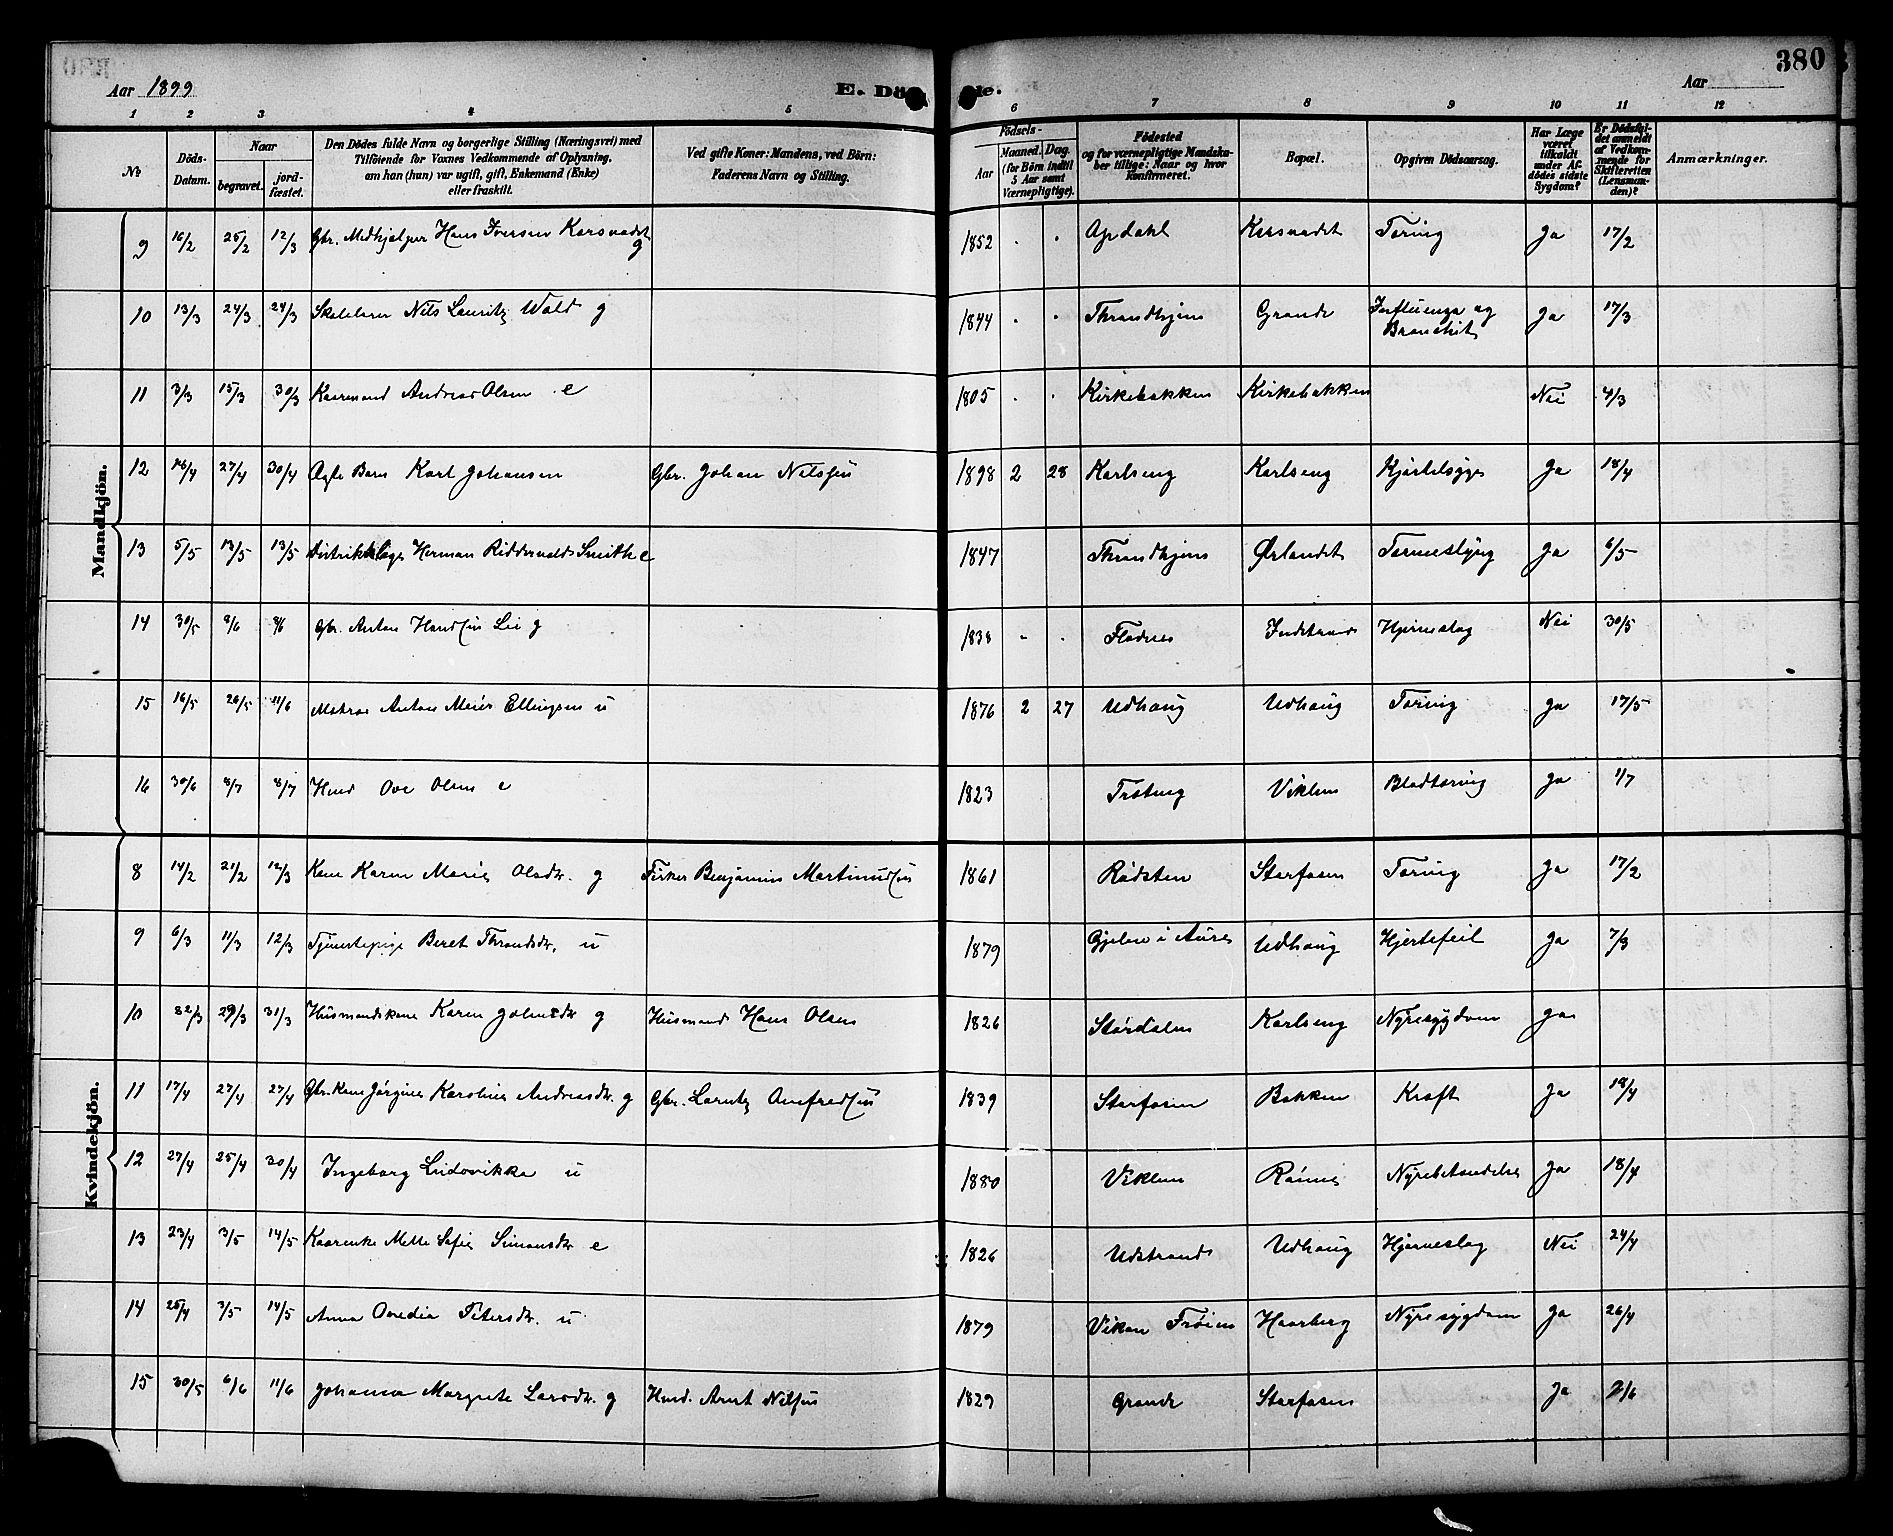 380
Aar 1899
E. Dö
de.
Aar
1 2 3 4 5 6 7 8 9 10 11 12
No
Döds-Datum.
Naar
begravet.
jord-fæstet.
Den Dödes fulde Navn og borgerlige Stilling (Næringsvei) med
Tilföiende for Voxnes Vedkommende af Oplysning,
om han (hun) var ugift, gift, Enkemand (Enke)
eller fraskilt.
Ved gifte Koner: Mandens, ved Börn:
Faderens Navn og Stilling.
Födsels-
Aar
Maaned. Dag.
(for Börn indtil
5 Aar samt
Værnepligtige).
Födested
og for værnepligtige Mandska-
ber tillige: Naar og hvor
konfirmeret.
Bopæl.
Opgiven Dödsaarsag.
Har Læge
været
tilkaldt
under Af-
dödes sidste
Sygdom?
Er Dödsfal-
det anmeldt
af Vedkom-
mende for
Skifteretten
(Lensman-
den)?
Anmærkninger.
Mandkjön.
9 16/2 25/2 12/3 Gbr. Medhjelper Hans Iversen Karsvadet g 1852 . . Opdahl Karsvadet Tæring Ja 17/2
10 13/3 24/3 24/3 Skolelærer Nils Lauritz Wold g 1844 . . Throndhjem Grande Influenza og Bronchit Ja 17/3
11 3/3 15/3 30/3 Kaarmand Andreas Olsen e 1805 . . Kirkebakken Kirkebakken Nei 4/3
12 16/4 27/4 30/4 Ægte Barn Karl Johansen Gbr. Johan Nilssen 1898 2 28 Karlseng Karlseng Kjertelsyge Ja 18/4
13 5/5 13/5 13/5 Distriktslæge Herman Riddervold Smith e 1847 Throndhjem Ørlandet Tarmeslyng Ja 6/5
14 30/5 8/6 8/6 Gbr. Anton Hansen Lei g 1838 - . Fladnes Indstrand Hjerneslag Nei 30/5
15 16/5 26/5 11/6 Matros Anton Meier Ellingsen u 1876 2 27 Udhaug Udhaug Tæring Ja 17/5
16 30/6 8/7 8/7 Hmd Ove Olsen e 1823 Træteng Viklem Blodtæring Ja 1/7
Kvindekjön.
8 14/2 21/2 12/3 Kone Karen Marie Olsdtr. g Fisker Benjamin Martinussen 1861 Rødsten Storfosen Tæring Ja 17/2
9 6/3 11/3 12/3 Tjenestepige Beret Throndsdtr. u 1879 Gjelen i Aure Udhaug Hjertefeil Ja 7/3
10 22/3 29/3 31/3 Husmandskone Karen Johnsdtr g Husmand Hans Olsen 1826 Størdalen Karlseng Nyresygdom Ja
11 17/4 27/4 27/4 Gbr. Kone Jørgine Karoline Andreasdtr. g Gbr. Lorntz Anfredsen 1839 Storfosen Bakken Kræft Ja 18/4
12 27/4 25/4 30/4 Ingeborg Ludovikka u 1880 Viklem Rønne Nyrebetændelse Ja 18/4
13 23/4 3/5 14/5 Kaarenke Mette Sofie Simonsdtr e 1826 Udstrand Udhaug Hjerneslag Nei 24/4
14 25/4 3/5 14/5 Anna Ovedia Petersdtr. u 1879 Vikan Frøien Haarberg Nyresygdom Ja 26/4
15 30/5 6/6 11/6 Johanna Margrete Larsdtr. g Hmd. Arnt Nilsen 1829 Grande Storfosen Ja 2/6